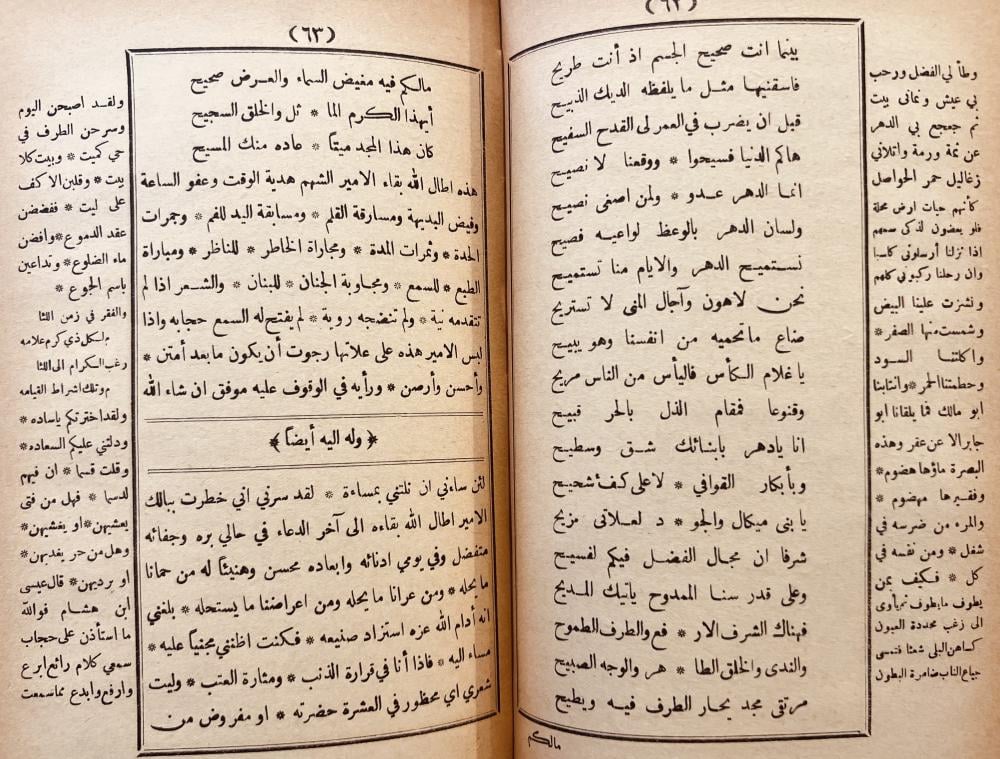 (٦٢)
بينما انت صحيح الجسم اذ أنت طريح
فاسقنيها مثل ما يلفظه الديك الذبيح
قبل ان يضرب في العمر لى القدح السفيح
هاكم الدنيا فسيحوا * ووقعنا لا نصيح
انما الدهر عدو * ولمن اصغى نصيح
ولسان الدهر بالوعظ لواعيه فصيح
نستميح الدهر والايام منا تستميح
نحن لاهون وآجال المنى لا تستريح
ضاع مانحميه من انفسنا وهو يبيح
يا غلام الكأس فاليأس من الناس مريح
وقنوعا فمقام الذل بالحر قبيح
انا يادهر بابنائك شق وسطيح
وبأبكار القوافي * لاعلى كفء شحيح
يا بنى ميكال والجو * د لعلاتى مزيح
شرفا ان مجال الفضل فيكم لفسيح
وعلى قدر سنا الممدوح يأتيك المديح
فهناك الشرف الار * فع والطرف الطموح
والندى والخلق الطا * هر والوجه الصبيح
مرتقى مجد يحار الطرف فيه ويطيح
مالكم
وطأ لي الفضل ورحب
بي عيش ونمانى بيت
ثم جعجع بي الدهر
عن ثمة ورمة واتلاني
زغاليل حمر الحواصل
كأنهم حيات ارض محلة
فلو يعضون لذكى سمهم
اذا نزلنا أرسلونى كاسبا
وان رحلنا ركبونى كلهم
ونشزت علينا البيض
وشمست منها الصفر *
واكلتنا السود
وحطمتنا الحمر * وانتابنا
ابو مالك فما يلقانا ابو
جابر الا عن عفر وهذه
البصرة ماؤها هضوم *
وفقيرها مهضوم *
والمرء من ضرسه في
شغل * ومن نفسه في
كل * فكيف بمن
يطوف مايطوف ثم يأوى
الى زغب محددة العيون
كساهن البلى شعثا فتمسى
جياع الناب ضامرة البطون
(٦٣)
مالكم فيه مغيض السماء والعرض صحيح
أيهذا الكرم الما * ثل والخلق السجيح
كان هذا المجد ميتا * عاده منك المسيح
هذه اطال الله بقاء الامير الشهم هدية الوقت وعفو الساعة
وفيض البديهة ومسارقة القلم * ومسابقة اليد للفم * وجمرات
الحدة * وثمرات المدة * ومجاراة الخاطر * للناظر * ومباراة
الطبع * للسمع * ومجاوبة الجنان * للبنان * والشعر اذا لم
تتقدمه نية * ولم تنضجه روية * لم يفتح له السمع حجابه واذا
لبس الامير هذه على علاتها رجوت أن يكون مابعد أمتن *
وأحسن وأرصن * ورأيه في الوقوف عليه موفق ان شاء الله
﴿ وله اليه أيضاً ﴾
لئن ساءني ان نلتني بمساءة * لقد سرني اني خطرت ببالك
الامير اطال الله بقاءه الى آخر الدعاء في حالي بره وجفائه
متفضل وفي يومي ادنائه وابعاده محسن وهنيئاً له من حمانا
ما يحله * ومن عرانا ما يحله ومن اعراضنا ما يستحله * بلغني
انه أدام الله عزه استزاد صنيعه * فكنت اظنني مجنياً عليه *
مساء اليه * فاذا أنا في قرارة الذنب * ومثارة العتب * وليت
شعري اي محظور في العشرة حضرته * او مفروض من
ولقد اصبحن اليوم
وسرحن الطرف في
حي كميت * وبيت كلا
بيت * وقلبن الاكف
على ليت * ففضضن
عقد الدموع * وافضن
ماء الضلوع * وتداعين
باسم الجوع *
والفقر في زمن اللئا
م لكل ذي كرم علامه
رغب الكرام الى اللئا
م وتلك اشراط القيامه
ولقد اخترتكم ياساده *
ودلتني عليكم السعاده *
وقلت قسما * ان فيهم
لدسما * فهل من فتى
يعشيهن * او يغشيهن *
وهل من حر يغديهن *
او يرديهن * قال عيسى
ابن هشام فوالله
ما استأذن على حجاب
سمعي كلام رائع ابرع
وارفع وابدع مما سمعت